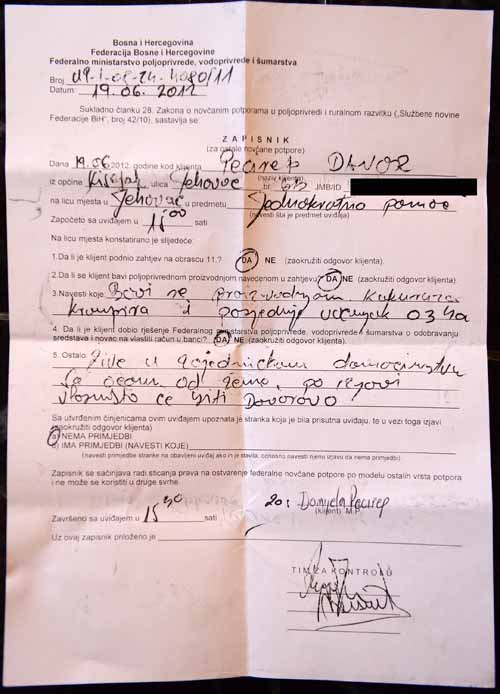 Bosna i Hercegovina
Federacija Bosne i Hercegovine
Federalno ministarstvo poljoprivrede, vodoprivrede i šumarstva
Broj 09-1-08-24-4080/11
Datum 19.06.2012
Sukladno članku 28. Zakona o novčanim potporama u poljoprivredi i ruralnom razvitku („Službene novine
Federacije BiH", broj 42/10), sastavlja se:
ZAPISNIK
(za ostale novčane potpore)
Dana 19.06 2012. godine kod klijenta DAVOR
(naziv klijenta)
iz općine Kiseljak ulica Jehovac br. JMB/ID
na licu mjesta u Jehovac u predmetu Jednokratna pomoć
(navesti šta je predmet uvidjaja)
Započeto sa uviđajem u 15 00 sati
Na licu mjesta konstatirano je slijedeće:
1. Da li je klijent podnio zahtjev na obrascu 11.? DA NE (zaokružiti odgovor klijenta).
2. Da li se klijent bavi poljoprivrednom proizvodnjom navecenom u zahtjevu? DA NE (zaokružiti odgovor klijenta).
3. Navesti koje: Bavi se proizvodnjom kukuruza
krompira i posjeduje 03 ha
4. Da li je klijent dobio rješenje Federalnog ministarstva poljoprivrede, vodoprivrede i šumarstva o odobravanju
sredstava i novac na vlastiti račun u banci? DA NE (zaokružiti odgovor klijenta).
5. Ostalo: Žive u zajedničkom domaćinstvu
sa od žene, po
Sa utvrđenim činjenicama ovim uviđajem upoznata je stranka koja je bila prisutna uviđaju, te u vezi toga izjavi
(zaokružiti odgovor klijenta)
a) NEMA PRIMJEDBI
b) IMA PRIMJEDBI (NAVESTI KOJE)
(navesti primjedbe stranke na obavljeni uviđaj ako ih je stavila, odnosno navesti njenu izjavu da nema primjedbi)
Zapisnik se sačinjava radi sticanja prava na ostvarenje federalne novčane potpore po modelu ostalih vrsta potpora
i ne može se koristiti u druge svrhe.
Završeno sa uviđajem u 15 30 sati
(klijent) M.P.
Uz ovaj zapisnik priloženo je
TIM ZA KONTROLU